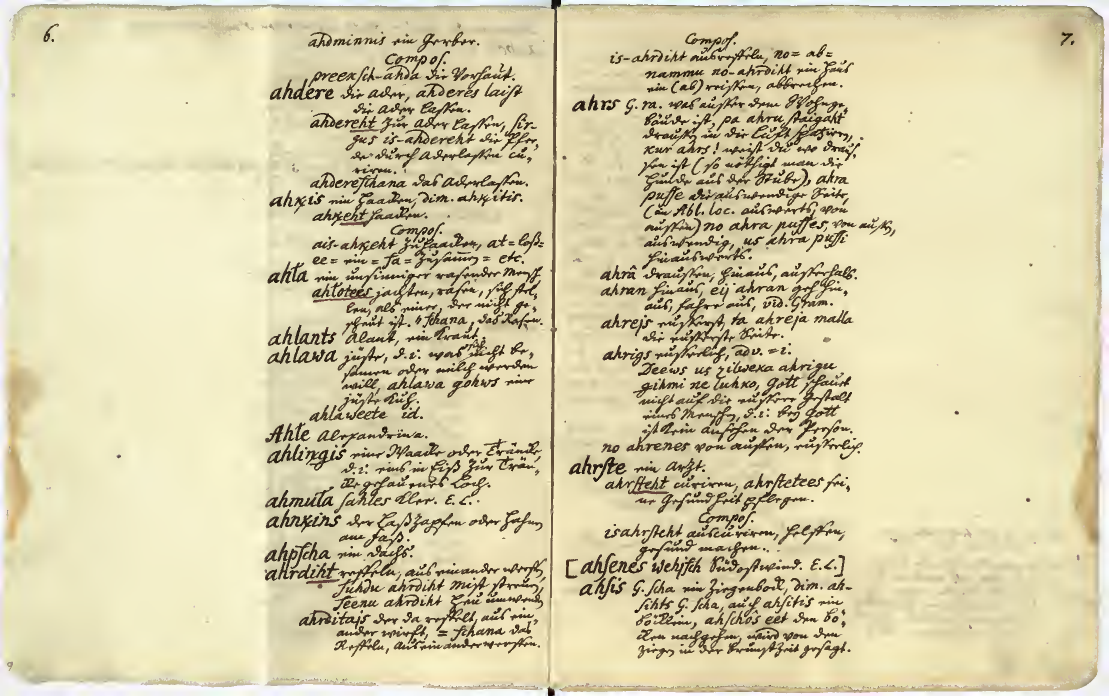 6.
ahdminnis ein Gerber.
Compos.
preeksch-ahda die Vorhaut.
ahdere die Ader, ahderes laist
die Ader lassen.
ahdereht zur Ader lassen, sir-
gus is-ahdereht die Pfer-
de durch Aderlassen cu-
riren.
ahdereschana das Aderlassen.
ahkis ein Haacken, dim. ahkitis.
ahkeht haacken.
Compos.
ais-ahkeht zuhaacken, at= loß=
ee= ein= sa= zusam̄en= etc.
ahla ein unsinniger rasender Mensch
ahlotees jachten, rasen, sich stel-
len, als einer, der nicht ge-
scheut ist. schana, das Rasen.
ahlants Alant, ein Kraut.
ahlawa jüste, d. i. was sich nicht be-
samen oder milch werden
will, ahlawa gohws eine
jüste Kuh.
ahlaweete id.
Ahle Alexandrina.
ahlingis eine Waacke oder Träncke,
d. i. eins in Eiß zur Trän-
cke gehauenes Loch.
ahmula fahles Klee. E. L.
ahnkins der Laßzapfen oder Hahn
am Faß.
ahpscha ein Dachs.
ahrdiht reffeln, aus einander werfen,
suhdu ahrdiht Mist streun,
seenu ahrdiht Heu umwenden
ahrditajs der da reffelt, aus ein-
ander wirft, = schana das
Reffeln, Auseinanderwerffen.
7.
Compos.
is-ahrdiht ausreffeln, no= ab=
nammu no-ahrdiht ein Haus
ein (ab) reissen, abbrechen.
ahrs G. ra. was ausser dem Wohnge-
bäude ist, pa ahru staigaht
draussen in die Luft spatziren,
kur ahrs! weist du wo draus-
sen ist (so nöthigt man die
Hunde aus der Stube), ahra
pusse die auswendige Seite,
(in Abl. loc. auswerts, von
aussen) no ahra pusses, von aussen,
auswendig, us ahra pussi
hinauswerts.
ahrâ draussen, hinaus, ausserhalb.
ahran hinaus, eij ahran geh hin-
aus, fahre aus, vid. Gram.
ahrejs eusserst, ta ahreja malla
die eusserste Seite.
ahrigs eusserlich, adv. = i.
Deews us zilweka ahrigu
gihmi ne luhko, Gott schauet
nicht auf die eussere Gestalt
eines Menschen, d. i. bey Gott
ist kein Ansehen der Person.
no ahrenes von aussen, eusserlich.
ahrste ein Arzt.
ahrsteht curiren, ahrstetees sei-
ne Gesundheit pflegen.
Compos.
isahrsteht auscuriren, helffen,
gesund machen.
[ahsenes wehjsch Südostwind. E. L.]
ahsis G. scha ein Ziegenbock, dim. ah-
sihts G. scha, auch ahsitis ein
Böcklein, ahschôs eet den Bö-
cken nachgehen, wird von den
Ziegen in der Brunstzeit gesagt.